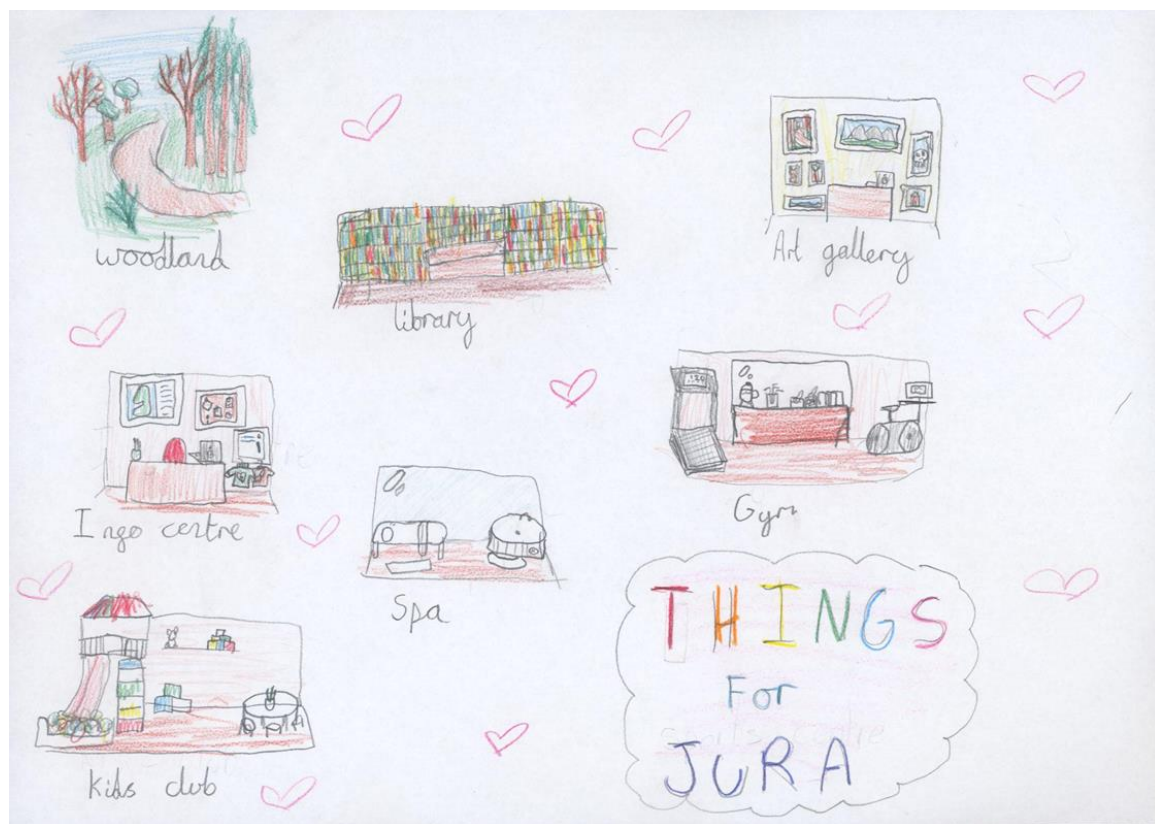 woodland
library
Art gallery
Ingo centre
Spa
Gym
Kids club
THINGS
For
JURA